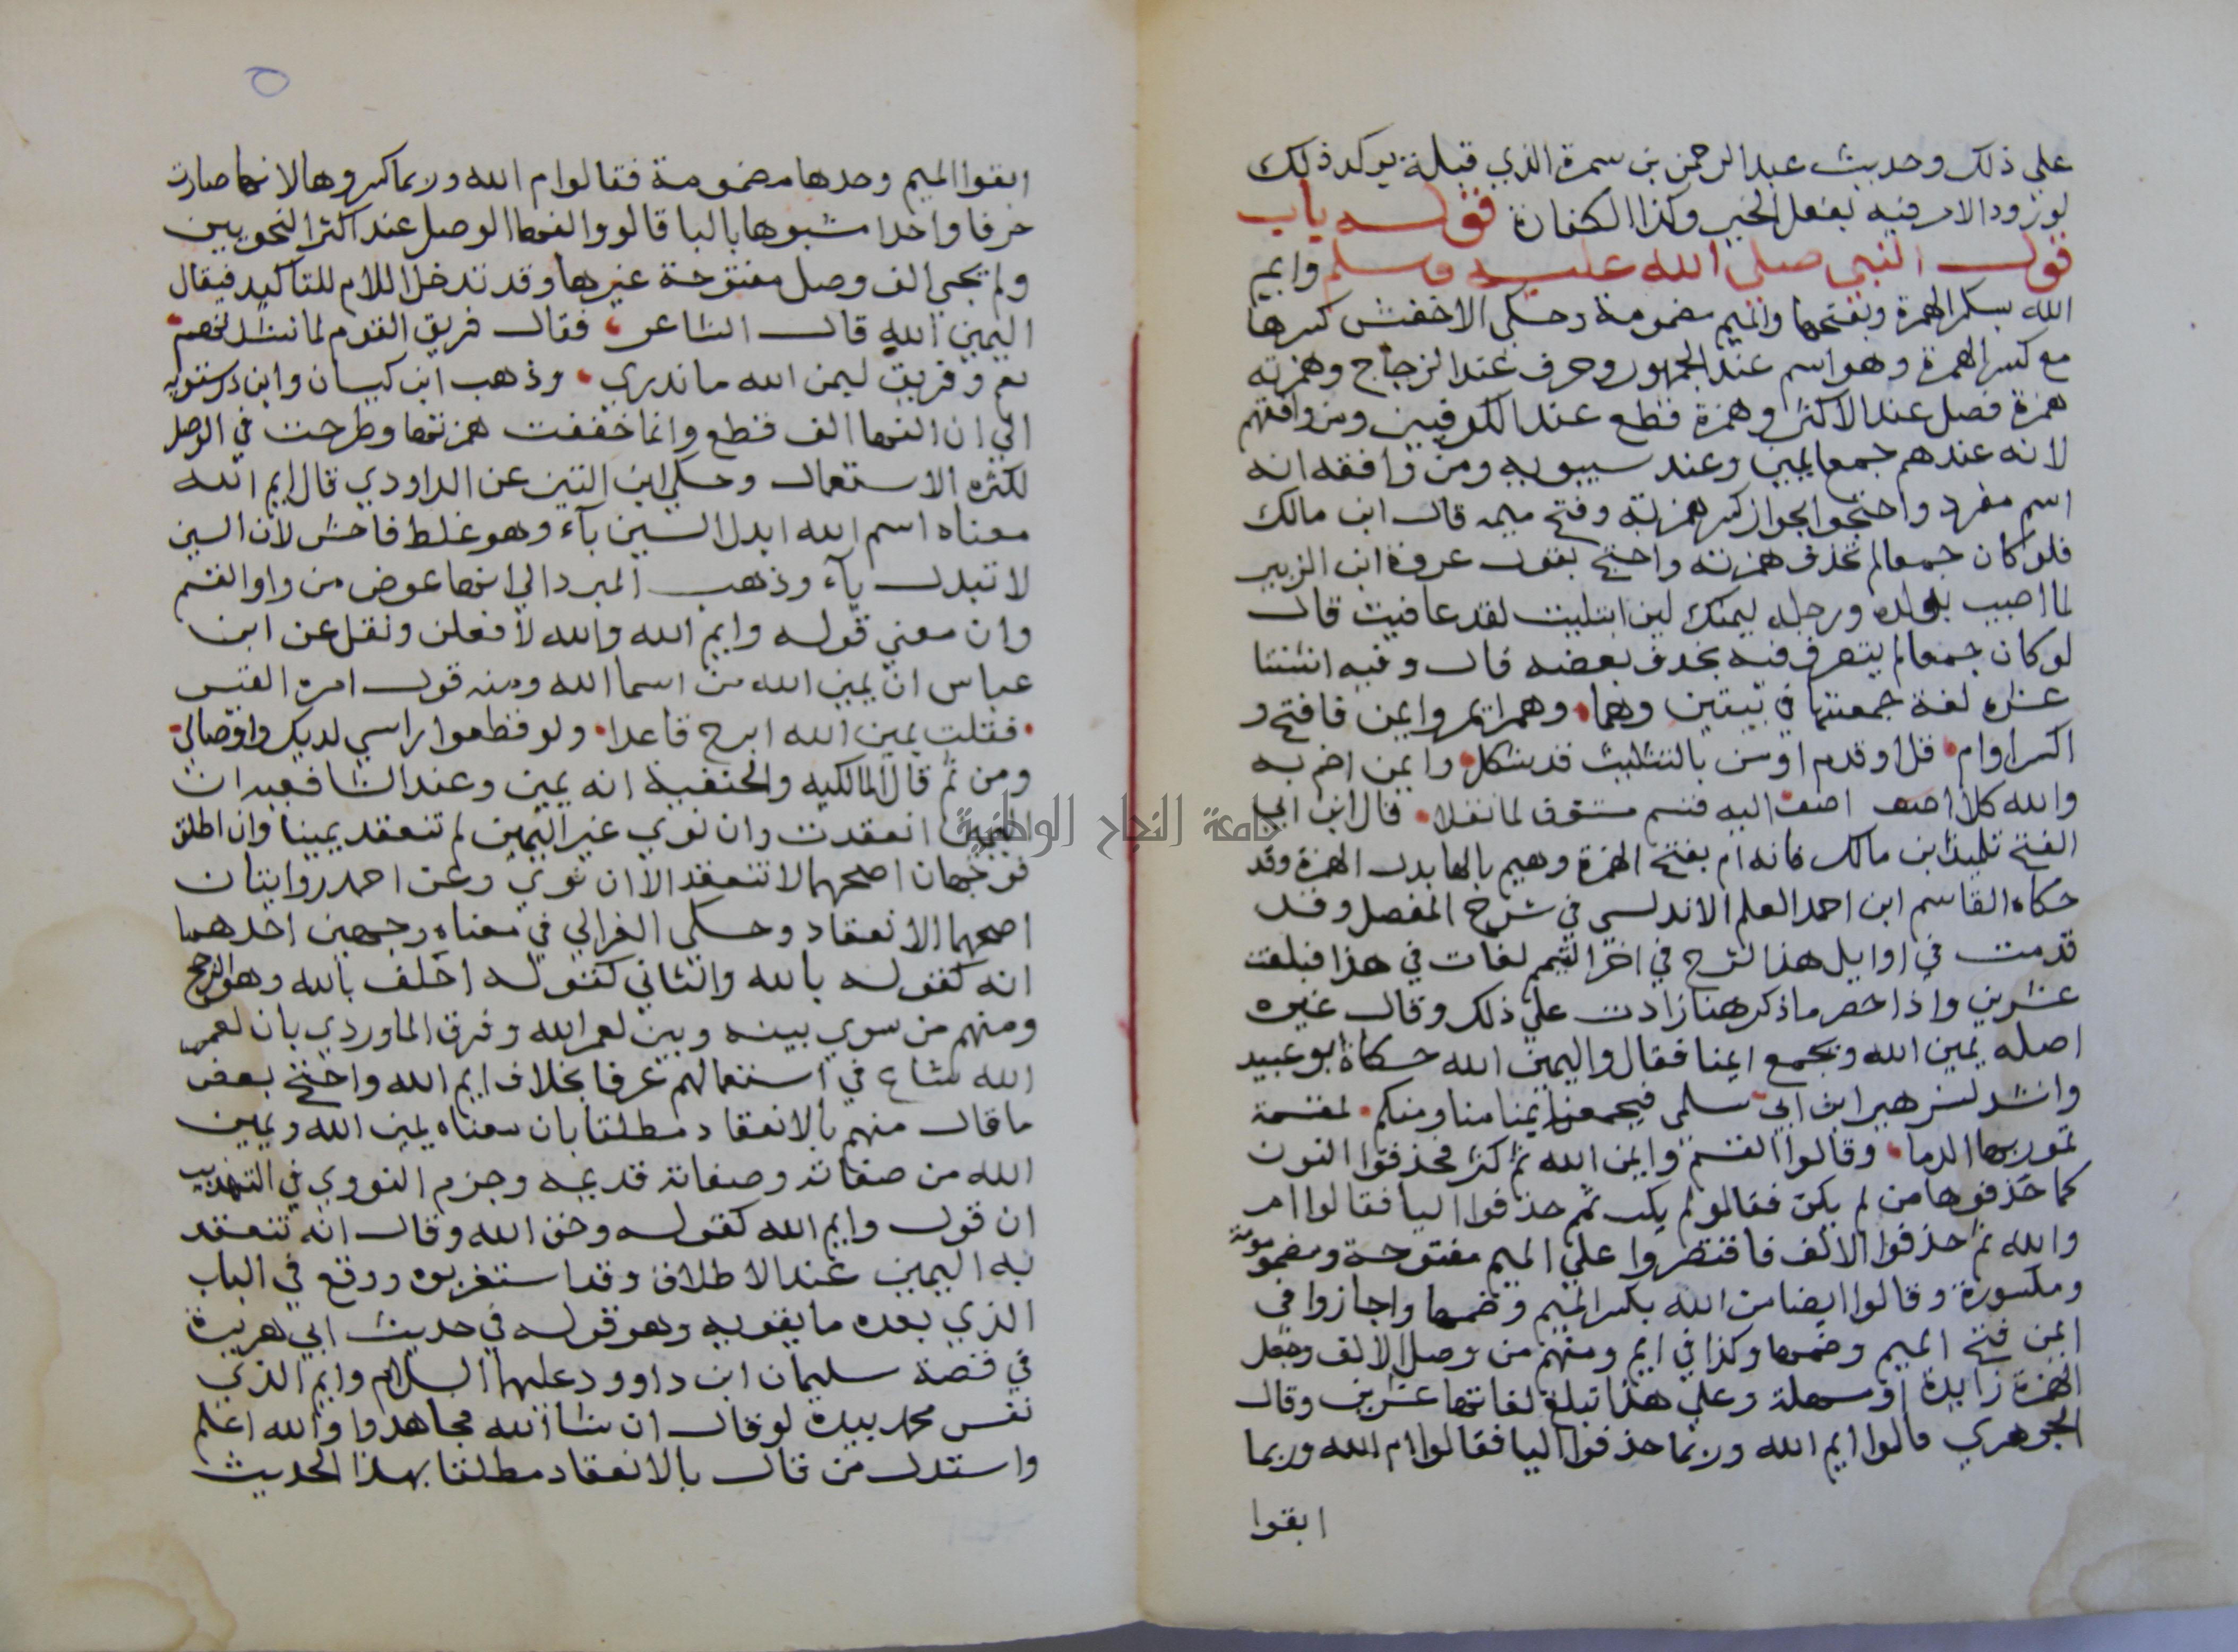 علي ذلك وحديث عبد الرحمن بن سمرة الذي قبله يوكد ذلك
لورود الامر فيه بفعل الخير وكذا الكفارة قوله باب
قول النبي صلى الله عليه وسلم وايم
الله بكسر الهمزة وبفتحها والميم مضمومة وحكي الاخفش كسرها
مع كسر الهمزة وهو اسم عند الجمهور وحرف عند الزجاج وهمزته
همزة فصل عند الاكثر وهمزة قطع عند الكوفيين ومن وافقهم
لانه عندهم جمع يمين وعند سيبويه ومن وافقه انه
اسم مفرد واحتجوا بجواز كسر همزته وفتح ميمه قال ابن مالك
فلو كان جمعا لم تحذف همزته واحتج بقول عروة ابن الزبير
لما اصيب بولده ورجله ليمنك لين ابتليت لقد عافيت قال
لو كان جمعا لم يتصرف فيه بحذف بعضه قال وفيه اثنتا
عشره لغة جمعتها في بيتين وهما وهمز ايم وايمن فافتح و
اكسر اوام قل او قدم او من بالتثليث قد شكل وايمن اختم به
والله كلا اضف اليه قسم تستوف ما نقلا قال ابن ابي
الفتح تلميذ ابن مالك فاته ام بفتح الهمزة وهيم بالها بدل الهمزة وقد
حكاه القاسم ابن احمد المعلم الاندلسي في شرح المفصل وقد
قدمت في اوايل هذا الشرح في اخر التيمم لغات في هذا فبلغت
عشرين واذا حصر ما ذكر هنا زادت علي ذلك وقال غيره
اصله يمين الله وتجمع ايمنا فقال واليمين الله حكاه ابو عبيد
وانشد لزهير ابن ابي سلمى فيجمع ايمنا منا ومنكم لمقسمة
تمور بها الدما وقالوا القسم وايمن الله ثم كثر فحذفوا النون
كما حذفوها من لم يكن فقالو لم يك ثم حذفوا اليا فقالوا ام
والله ثم حذفوا الالف فاقتصروا علي الميم مفتوحة ومضمومة
ومكسورة وقالوا ايضا من الله بكسر الميم وضمها واجازوا في
ايمن فتح الميم وضمها وكذا في ايم ومنهم من وصل الالف وجعل
الهمزة زايدة او مسهلة وعلي هذا تبلغ لغاتها عشرين وقال
الجوهري قالوا ايم الله وربما حذفوا اليا فقالوا ام الله وربما
ابقوا
ابقوا الميم وحدها مضمومة فقالوا م الله وربما كسروها لانها صارت
حرفا واحدا شبهوها بالبا قالو والفها الوصل عند اكثر النحويين
ولم يجي الف وصل مفتوحة غيرها وقد تدخل اللام للتاكيد فيقال
اليمين الله قال الشاعر فقال فريق القوم لما نشدتهم
نعم وفريق ليمن الله ما ندري وذهب ابن كيسان وابن درستويه
الي ان الفها الف قطع وانما خففت همزتها وطرحت في الوصل
لكثره الاستعمال وحكي ابن التين عن الداودي قال ايم الله
معناه اسم الله ابدل السين ياء وهو غلط فاحش لان السين
لا تبدل ياء وذهب المبرد الي انها عوض من واو القسم
وان معني قوله وايم الله والله لافعلن ونقل عن ابن
عباس ان يمين الله من اسما الله ومنه قول امره القيس
فقلت يمين الله ابرح قاعدا ولو قطعوا راسي لديك واوصالي
ومن ثم قال المالكيه والحنفية انه يمين وعند الشافعيه ان
اليمين انعقدت وان نوي غير اليمين لم تنعقد يمينا وان اطلق
فوجهان اصحهما لا تنعقد الا ان نوي وعن احمد روايتان
اصحهما الانعقاد وحكي الغزالي في معناه وجهين احدهما
انه كقوله بالله والثاني كقوله احلف بالله وهو الراجح
ومنهم من سوي بينه وبين لعمر الله وفرق الماوردي بان لعمر
الله شاع في استعمالهم عرفا بخلاف ايم الله واحتج بعض
ما قال منهم بالانعقاد مطلقا بان معناه يمين الله ويمين
الله من صفاته وصفاته قديمه وجزم النووي في التهذيب
ان قول وايم الله كقوله وحق الله وقال انه تنعقد
به اليمين عند الاطلاق وقد استغربوه ووقع في الباب
الذي بعده ما يقويه وهو قوله في حديث ابي هريرة
في قصة سليمان ابن داوود عليهما السلام وايم الذي
نفس محمد بيده لو قال ان شا الله لجاهدوا والله اعلم
واستدل من قال بالانعقاد مطلقا بهذا الحديث
جامعة النجاح الوطنية